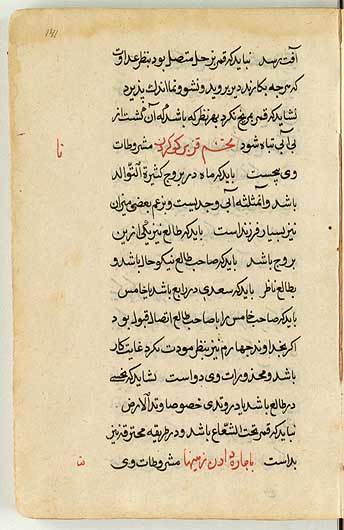 ۱۴۱
آفت رسد نباید که قمر بزحل متصل بود بنظر عداوت
که هرچه بکارند دیر بروید و نشو و نما اندک پذیرد
نشاید که قمر بمریخ نکرد بهر نظر که باشد که آن کشت از
بی آبی تباه شود تخم قز بیرون کردن مشروطات
نا
وی پنجست باید که ماه در بروج کثیرة التوالد
باشد و آن مثلثه آبی و جدیست و بزعم بعضی میزان
نیز بسیار فرزند است باید که طالع نیز یکی از این
بروج باشد باید که صاحب طالع نیکو حال باشد و
بطالع ناظر باید که سعدی در رابع باشد یا خامس
باید که صاحب خامس را با صاحب طالع اتصال قبول بود
اگر بخداوند چهارم نیز بنظر مودت نکرد غایت کار
باشد و محذورات وی دو است نشاید که نحسی
در طالع باشد یا در وتدی خصوصا وتد الارض
نباید که قمر تحت الشعاع باشد و در طریقه محترقه نیز
بد است باجاره دادن زمینها مشروطات وی